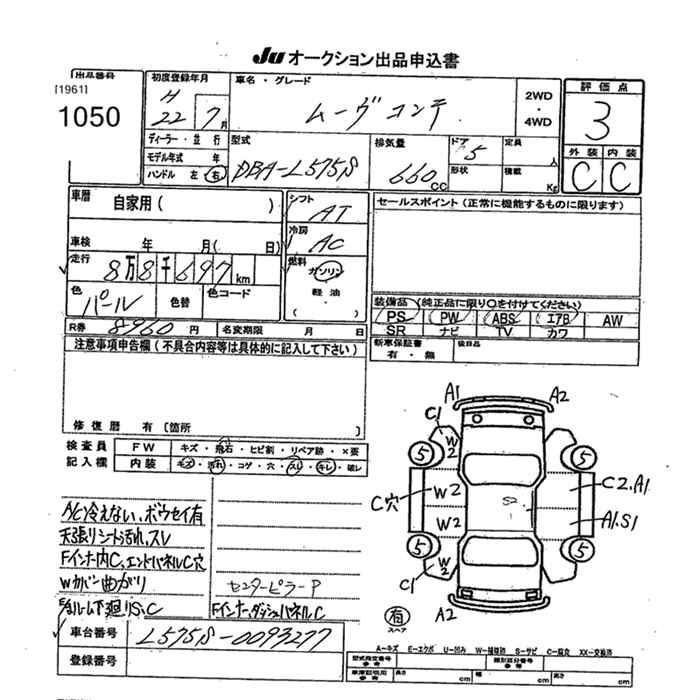 Ju オークション出品申込書
出品番号
[1961]
1050
初度登録年月
H 22年 7月
車名・グレード
ムーヴコンテ
2WD
・
4WD
評価点
3
外装 内装
C C
ディーラー・並行
モデル年式 年
ハンドル 左 右
型式
DBA-L575S
排気量
660 CC
ドア 5
形状
定員 人
積載 Kg
車歴
自家用 ( )
車検 年 月( 日)
走行
8万8千697 km
色
パール
色替
色コード
シフト
AT
冷房
AC
燃料
ガソリン
軽油
( )
R券 8960 円
名変期限 月 日
セールスポイント (正常に機能するものに限ります)
装備品 (純正品に限り○を付けてください)
PS PW ABS エアB AW
SR ナビ TV カワ
新車保証書
有・無
後日品
注意事項申告欄 (不具合内容等は具体的に記入して下さい)
修復歴 有 [箇所 ]
検査員
記入欄
FW キズ・飛石・ヒビ割・リペア跡・×要
内装 キズ・汚れ・コゲ・穴・スレ・キレ・破レ
A/C冷えない、ボウセイ有
天張りシート汚れ、スレ
Fインナー内C、エンドパネルC穴
Wカバー曲がり
下廻りS、C
センターピラーP
Fインナー、ダッシュパネルC
A1 A2
C1 W2
5 5
C穴 W2
C2.A1
W2
A1.S1
5 5
C1 W2
A2
有
スペア
車台番号
L575S-0093277
登録番号
A-キズ E-エクボ U-凹み W-補修跡 S-サビ C-腐食 XX-交換済
型式指定番号
参考
類別区分番号
参考
車庫証明用
参考
長さ cm 幅 cm 高さ cm